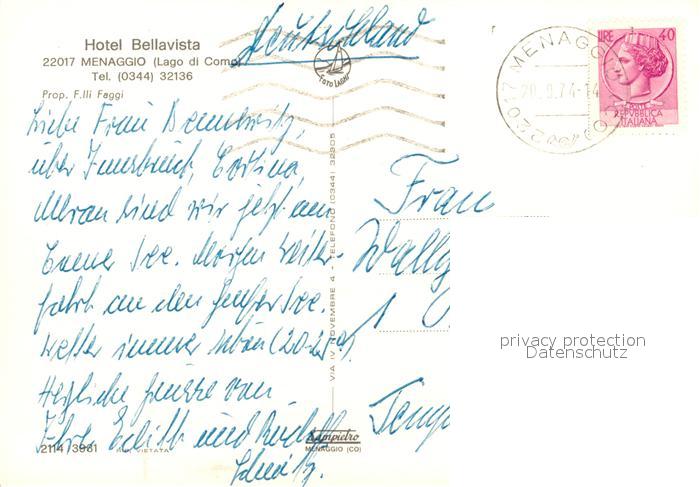 Deutschland
Hotel Bellavista
22017 MENAGGIO (Lago di Como)
Tel. (0344) 32136
Prop. F.lli Faggi
FOTO LAGHI
22017 MENAGGIO (CO)
20.9.74-14
LIRE 40
POSTE
REPVBBLICA
ITALIANA
Liebe Frau
über Innsbruck, Cortina,
Meran sind wir jetzt am
Comer See. Morgen Weiter-
fahrt an den Genfer See.
Wetter immer schön (20-25°).
Herzliche Grüsse von
Ihre Edith und Rudolf
Schmitz.
Frau
Wally
1
Temp
VIA IV NOVEMBRE 4 - TELEFONO (0344) 32305
Sampietro
MENAGGIO (CO)
2114/3981
RIP. VIETATA
privacy protection
Datenschutz